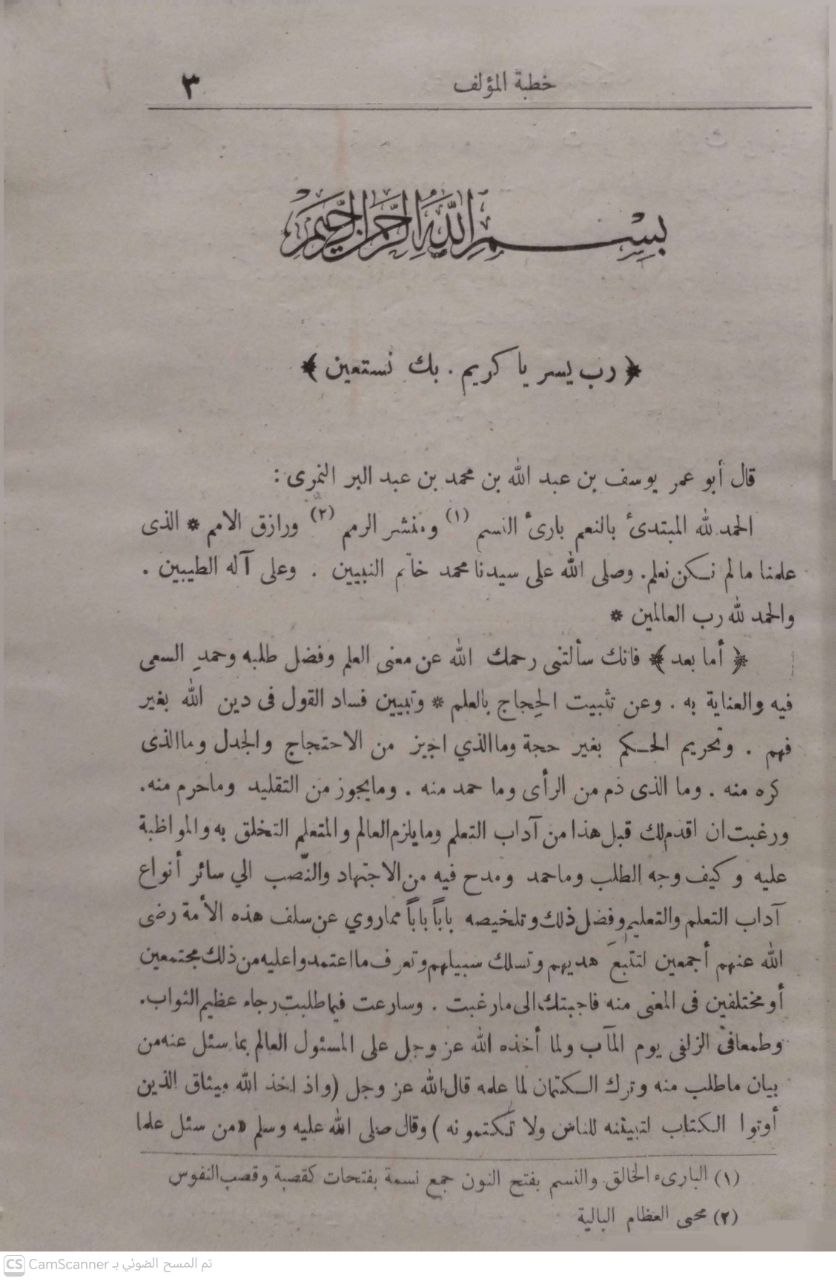 خطبة المؤلف ٣
بِسْمِ اللَّهِ الرَّحْمَنِ الرَّحِيمِ
﴿ رب يسر يا كريم . بك نستعين ﴾
قال أبو عمر يوسف بن عبد الله بن محمد بن عبد البر النمرى :
الحمد لله المبتدئ بالنعم بارئ النسم (١) ومنشر الرمم (٢) ورازق الامم * الذى
علمنا ما لم نكن نعلم. وصلى الله على سيدنا محمد خاتم النبيين . وعلى آله الطيبين .
والحمد لله رب العالمين *
﴿ أما بعد ﴾ فانك سألتنى رحمك الله عن معنى العلم وفضل طلبه وحمدِ السعى
فيه والعناية به . وعن تثبيت الحِجاج بالعلم * وتبيين فساد القول فى دين الله بغير
فهم . وتحريم الحكم بغير حجة وما الذي اجيز من الاحتجاج والجدل وما الذى
كره منه . وما الذى ذم من الرأى وما حمد منه . وما يجوز من التقليد وما حرم منه.
ورغبت ان اقدم لك قبل هذا من آداب التعلم وما يلزم العالم والمتعلم التخلق به والمواظبة
عليه وكيف وجه الطلب وما حمد ومدح فيه من الاجتهاد والنَّصب الي سائر أنواع
آداب التعلم والتعليم وفضل ذلك وتلخيصه باباً باباً مما روي عن سلف هذه الأمة رضى
الله عنهم أجمعين لتتبعَ هديهم وتسلك سبيلهم وتعرف ما اعتمدوا عليه من ذلك مجتمعين
أو مختلفين فى المعنى منه فاجبتك الى ما رغبت . وسارعت فيما طلبت رجاء عظيم الثواب.
وطمعا فى الزلفى يوم المآب ولما أخذه الله عز وجل على المسئول العالم بما سئل عنه من
بيان ما طلب منه وترك الكتمان لما علمه قال الله عز وجل (واذ اخذ الله ميثاق الذين
أوتوا الكتاب لتبيننه للناس ولا تكتمونه ) وقال صلى الله عليه وسلم «من سئل علما
(١) البارىء الخالق والنسم بفتح النون جمع نسمة بفتحات كقصبة وقصب النفوس
(٢) محى العظام البالية
CS CamScanner تم المسح الضوئي بـ